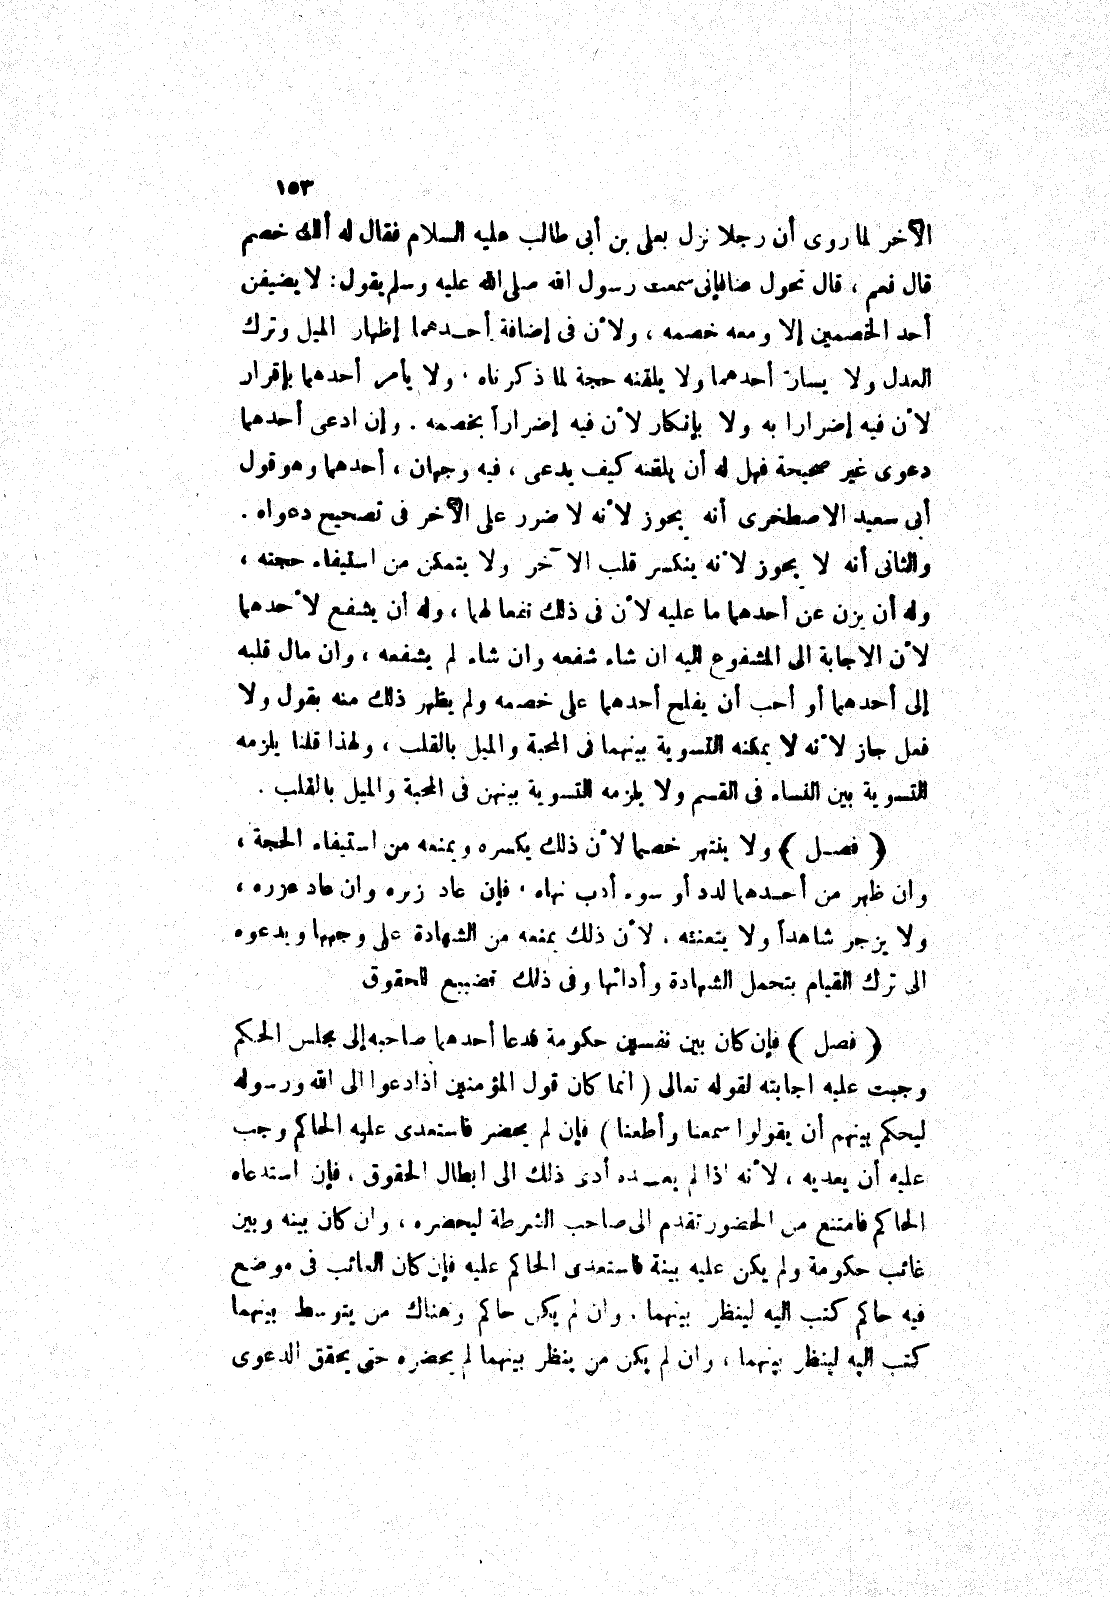 ١٥٣
الآخر لما روى أن رجلا نزل بعلى بن أبى طالب عليه السلام فقال له ألك خصم
قال نعم ، قال تحول عنا فإنى سمعت رسول الله صلى الله عليه وسلم يقول : لا يضيفن
أحد الخصمين إلا ومعه خصمه ، ولأن فى إضافة أحـدهما إظهار الميل وترك
العدل ولا يسار أحدهما ولا يلقنه حجة لما ذكرناه . ولا يأمر أحدهما بإقرار
لأن فيه إضرارا به ولا بإنكار لأن فيه إضراراً بخصمه . وإن ادعى أحدهما
دعوى غير صحيحة فهل له أن يلقنه كيف يدعى ، فيه وجهان ، أحدهما وهو قول
أبى سعيد الاصطخرى أنه يجوز لأنه لا ضرر على الآخر فى تصحيح دعواه .
والثانى أنه لا يجوز لأنه ينكسر قلب الآخر ولا يتمكن من استيفاء حجته ،
وله أن يزن عن أحدهما ما عليه لأن فى ذلك نفعا لهما ، وله أن يشفع لأحدهما
لأن الاجابة الى المشفوع اليه ان شاء شفعه وان شاء لم يشفعه ، وان مال قلبه
إلى أحدهما أو أحب أن يفلح أحدهما على خصمه ولم يظهر ذلك منه بقول ولا
فعل جاز لأنه لا يمكنه التسوية بينهما فى المحبة والميل بالقلب ، ولهذا قلنا يلزمه
التسوية بين النساء فى القسم ولا يلزمه التسوية بينهن فى المحبة والميل بالقلب .
( فصـل ) ولا ينتهر خصما لأن ذلك يكسره ويمنعه من استيفاء الحجة ،
وان ظهر من أحـدهما لدد أو سوء أدب نهاه . فإن عاد زبره وان عاد عزره ،
ولا يزجر شاهداً ولا يتعنته . لأن ذلك يمنعه من الشهادة على وجهها ويدعوه
الى ترك القيام بتحمل الشهادة وأدائها وفى ذلك تضييع للحقوق
( فصل ) فإن كان بين نفسين حكومة فدعا أحدهما صاحبه إلى مجلس الحكم
وجبت عليه اجابته لقوله تعالى ( انما كان قول المؤمنين اذا دعوا الى الله ورسوله
ليحكم بينهم أن يقولوا سمعنا وأطعنا ) فإن لم يحضر فاستعدى عليه الحاكم وجب
عليه أن يعديه ، لأنه اذا لم يعـده أدى ذلك الى ابطال الحقوق ، فإن استدعاه
الحاكم فامتنع من الحضور تقدم الى صاحب الشرطة ليحضره ، وان كان بينه وبين
غائب حكومة ولم يكن عليه بينة فاستعدى الحاكم عليه فإن كان الغائب فى موضع
فيه حاكم كتب اليه لينظر بينهما . وان لم يكن حاكم وهناك من يتوسط بينهما
كتب اليه لينظر بينهما ، وان لم يكن من ينظر بينهما لم يحضره حتى يحقق الدعوى